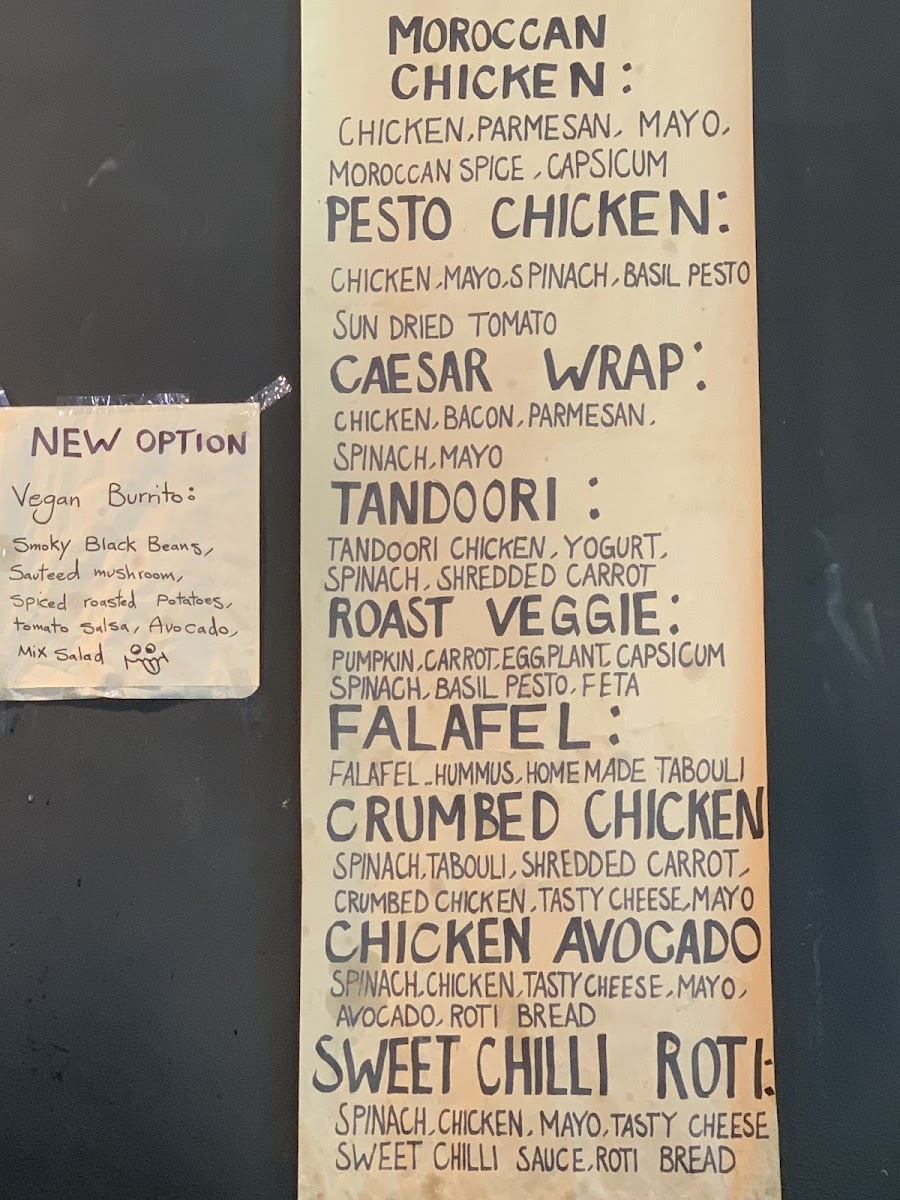 MOROCCAN
CHICKEN:
CHICKEN, PARMESAN, MAYO,
MOROCCAN SPICE, CAPSICUM
PESTO CHICKEN:
CHICKEN, MAYO, SPINACH, BASIL PESTO
SUN DRIED TOMATO
CAESAR WRAP:
CHICKEN, BACON, PARMESAN.
SPINACH, MAYO
TANDOORI:
TANDOORI CHICKEN, YOGURT,
SPINACH, SHREDDED CARROT
ROAST VEGGIE:
PUMPKIN, CARROT, EGGPLANT, CAPSICUM
SPINACH, BASIL PESTO, FETA
FALAFEL:
FALAFEL, HUMMUS, HOMEMADE TABOULI
CRUMBED CHICKEN
SPINACH, TABOULI, SHREDDED CARROT,
CRUMBED CHICKEN, TASTY CHEESE, MAYO
CHICKEN AVOCADO
SPINACH, CHICKEN, TASTY CHEESE, MAYO,
AVOCADO, ROTI BREAD
SWEET CHILLI ROTI:
SPINACH, CHICKEN, MAYO, TASTY CHEESE
SWEET CHILLI SAUCE, ROTI BREAD
NEW OPTION
Vegan Burrito:
Smoky Black Beans,
Sauteed mushroom,
Spiced roasted Potatoes,
tomato Salsa, Avocado,
Mix Salad